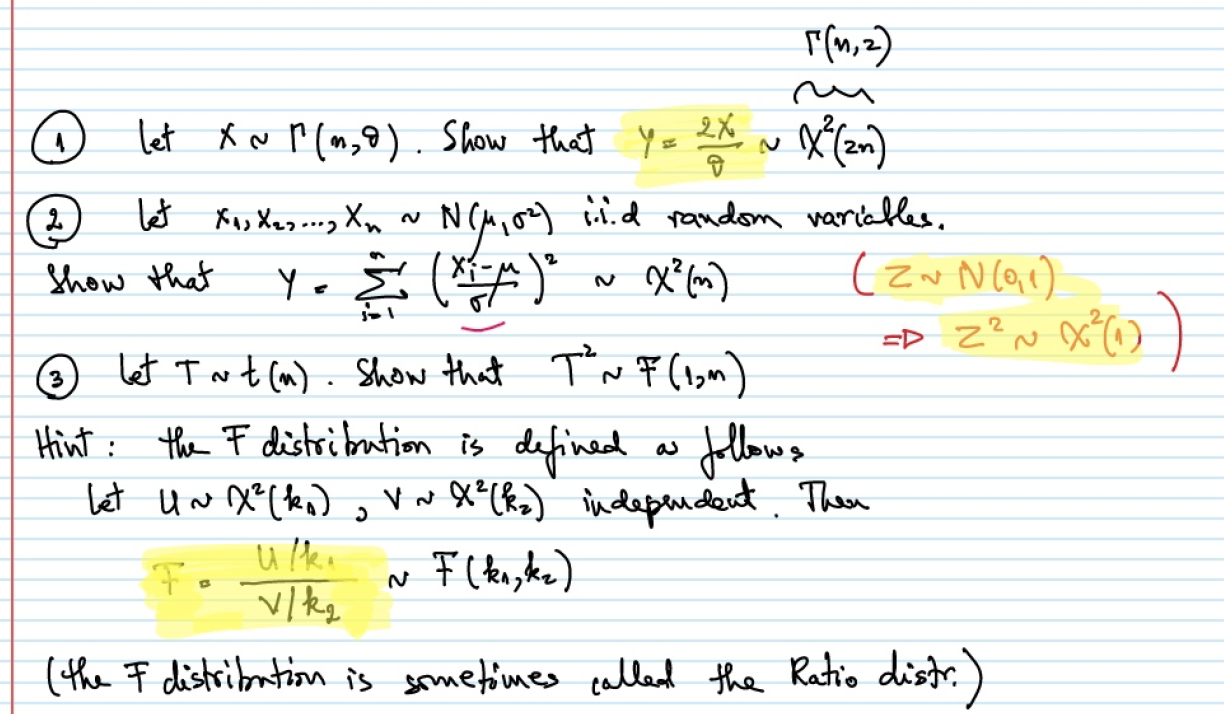 Γ(n,2)
① let X ~ Γ(n,θ). Show that Y = 2X/θ ~ χ²(2n)
② let X₁, X₂, ..., Xₙ ~ N(μ,σ²) i.i.d random variables.
Show that Y = Σᵢ₌₁ⁿ ((Xᵢ-μ)/σ)² ~ χ²(n) (Z ~ N(0,1)
=> Z² ~ χ²(1))
③ let T ~ t(n). Show that T² ~ F(1,n)
Hint : the F distribution is defined as follows
let U ~ χ²(k₁), V ~ χ²(k₂) independent. Then
F = (U/k₁)/(V/k₂) ~ F(k₁,k₂)
(the F distribution is sometimes called the Ratio distr.)